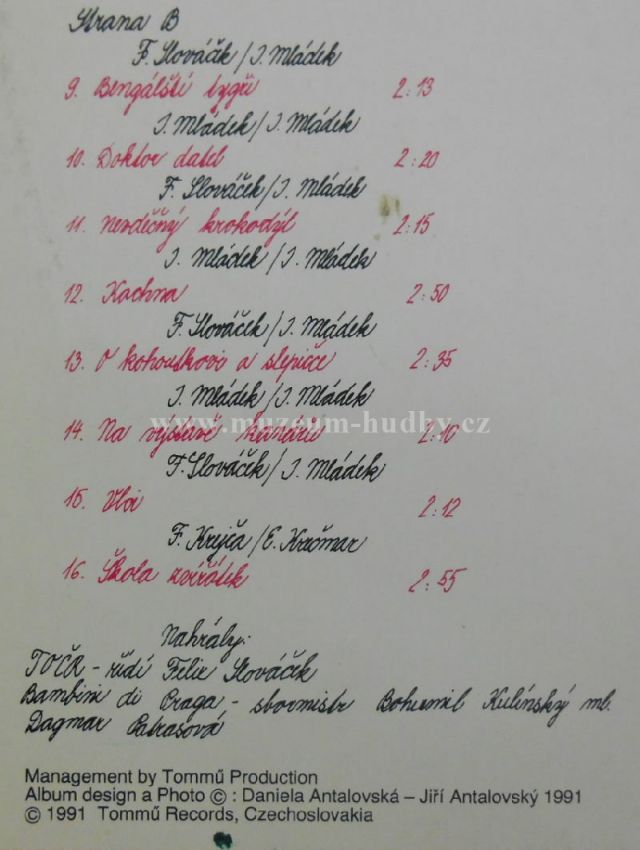 Strana B
F. Slováček / I. Mládek
9. Bengálští tygři 2:13
I. Mládek / I. Mládek
10. Doktor datel 2:20
F. Slováček / I. Mládek
11. Nevděčný krokodýl 2:15
I. Mládek / I. Mládek
12. Kachna 2:50
F. Slováček / I. Mládek
13. O kohoutkovi a slepičce 2:35
I. Mládek / I. Mládek
www.muzeum-hudby.cz
14. Na výstavě kanárů 2:10
F. Slováček / I. Mládek
15. Vlci 2:12
F. Krejča / E. Krečmar
16. Škola zvířátek 2:55
Nahrály:
TOČR - řídí Felix Slováček
Bambini di Praga - sbormistr Bohumil Kulínský ml.
Dagmar Patrasová
Management by Tommű Production
Album design a Photo © : Daniela Antalovská – Jiří Antalovský 1991
© 1991 Tommű Records, Czechoslovakia